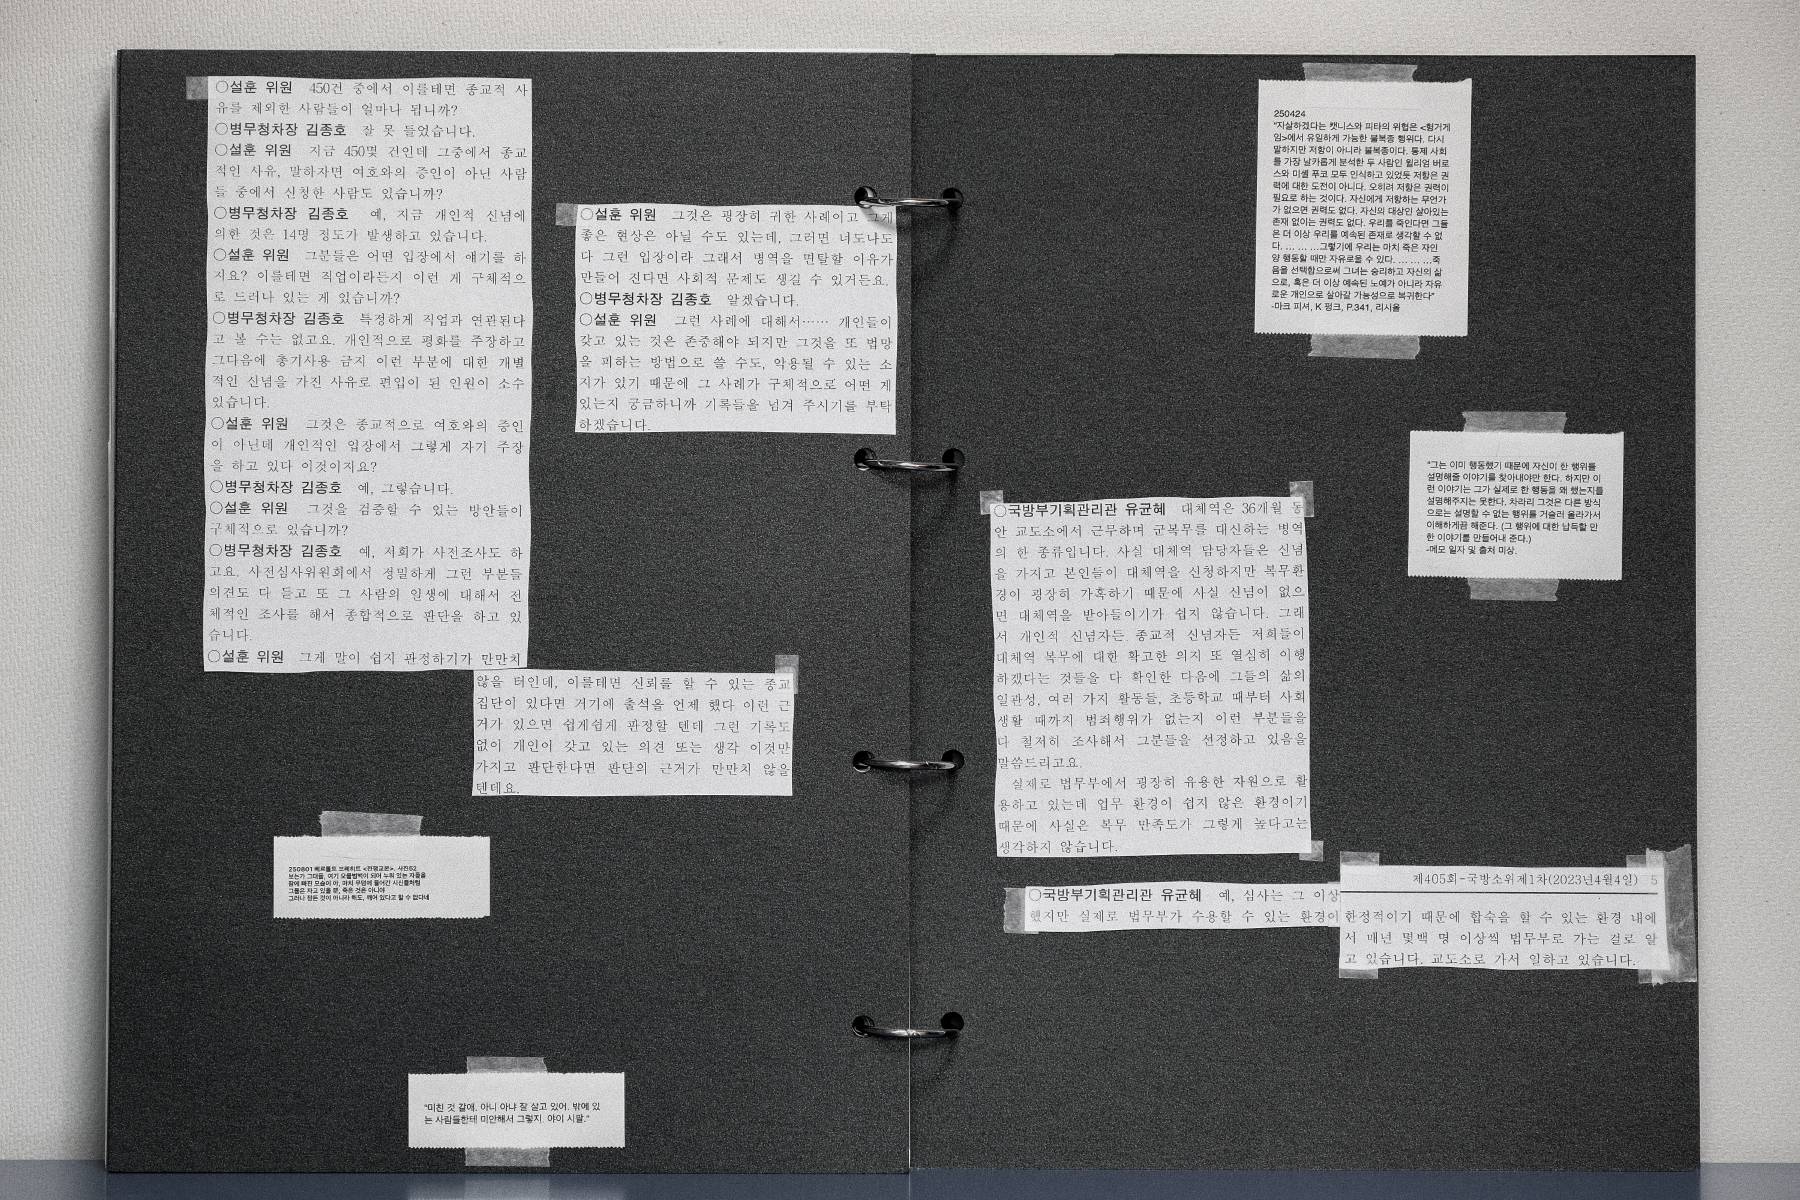 ○설훈 위원 450건 중에서 이를테면 종교적 사
유를 제외한 사람들이 얼마나 됩니까?
○병무청차장 김종호 잘 못 들었습니다.
○설훈 위원 지금 450몇 건인데 그중에서 종교
적인 사유, 말하자면 여호와의 증인이 아닌 사람
들 중에서 신청한 사람도 있습니까?
○병무청차장 김종호 예, 지금 개인적 신념에
의한 것은 14명 정도가 발생하고 있습니다.
○설훈 위원 그분들은 어떤 입장에서 얘기를 하
지요? 이를테면 직업이라든지 이런 게 구체적으
로 드러나 있는 게 있습니까?
○병무청차장 김종호 특정하게 직업과 연관된다
고 볼 수는 없고요. 개인적으로 평화를 주장하고
그다음에 총기사용 금지 이런 부분에 대한 개별
적인 신념을 가진 사유로 편입이 된 인원이 소수
있습니다.
○설훈 위원 그것은 종교적으로 여호와의 증인
이 아닌데 개인적인 입장에서 그렇게 자기 주장
을 하고 있다 이것이지요?
○병무청차장 김종호 예, 그렇습니다.
○설훈 위원 그것을 검증할 수 있는 방안들이
구체적으로 있습니까?
○병무청차장 김종호 예, 저희가 사전조사도 하
고요. 사전심사위원회에서 정밀하게 그런 부분들
의견도 다 듣고 또 그 사람의 일생에 대해서 전
체적인 조사를 해서 종합적으로 판단을 하고 있
습니다.
○설훈 위원 그게 말이 쉽지 판정하기가 만만치
않을 터인데, 이를테면 신뢰를 할 수 있는 종교
집단이 있다면 거기에 출석을 언제 했다 이런 근
거가 있으면 쉽게쉽게 판정할 텐데 그런 기록도
없이 개인이 갖고 있는 의견 또는 생각 이것만
가지고 판단한다면 판단의 근거가 만만치 않을
텐데요.
○설훈 위원 그것은 굉장히 귀한 사례이고 그게
좋은 현상은 아닐 수도 있는데, 그러면 너도나도
다 그런 입장이라 그래서 병역을 면탈할 이유가
만들이 진다면 사회적 문제도 생길 수 있거든요.
○병무청차장 김종호 알겠습니다.
○설훈 위원 그런 사례에 대해서…… 개인들이
갖고 있는 것은 존중해야 되지만 그것을 또 법망
을 피하는 방법으로 쓸 수도, 악용될 수 있는 소
지가 있기 때문에 그 사례가 구체적으로 어떤 게
있는지 궁금하니까 기록들을 넘겨 주시기를 부탁
하겠습니다.
250801 베르톨트 브레히트 <전쟁교본>, 사진52
보는가 그대들, 여기 오물범벅이 되어 누워 있는 자들을
잠에 빠진 모습이 아, 마치 무덤에 들어간 시신들처럼
그들은 자고 있을 뿐, 죽은 것은 아니야
그러나 잠든 것이 아니라 해도, 깨어 있다고 할 수 없다네
"미친 것 같애. 아니 아냐 잘 살고 있어. 밖에 있
는 사람들한테 미안해서 그렇지. 야이 시팔."
250424
"자살하겠다는 캣니스와 피타의 위협은 <헝거게
임>에서 유일하게 가능한 불복종 행위다. 다시
말하지만 저항이 아니라 불복종이다. 통제 사회
를 가장 날카롭게 분석한 두 사람인 윌리엄 버로
스와 미셸 푸코 모두 인식하고 있었듯 저항은 권
력에 대한 도전이 아니다. 오히려 저항은 권력이
필요로 하는 것이다. 자신에게 저항하는 무언가
가 없으면 권력도 없다. 자신의 대상인 살아있는
존재 없이는 권력도 없다. 우리를 죽인다면 그들
은 더 이상 우리를 예속된 존재로 생각할 수 없
다. … … …그렇기에 우리는 마치 죽은 자인
양 행동할 때만 자유로울 수 있다. … … …죽
음을 선택함으로써 그녀는 승리하고 자신의 삶
으로, 혹은 더 이상 예속된 노예가 아니라 자유
로운 개인으로 살아갈 가능성으로 복귀한다"
-마크 피셔, K 펑크, P.341, 리시올
"그는 이미 행동했기 때문에 자신이 한 행위를
설명해줄 이야기를 찾아내야만 한다. 하지만 이
런 이야기는 그가 실제로 한 행동을 왜 했는지를
설명해주지는 못한다. 차라리 그것은 다른 방식
으로는 설명할 수 없는 행위를 거슬러 올라가서
이해하게끔 해준다. (그 행위에 대한 납득할 만
한 이야기를 만들어내 준다.)
-메모 일자 및 출처 미상.
○국방부기획관리관 유균혜 대체역은 36개월 동
안 교도소에서 근무하며 군복무를 대신하는 병역
의 한 종류입니다. 사실 대체역 담당자들은 신념
을 가지고 본인들이 대체역을 신청하지만 복무환
경이 굉장히 가혹하기 때문에 사실 신념이 없으
면 대체역을 받아들이기가 쉽지 않습니다. 그래
서 개인적 신념자든 종교적 신념자든 저희들이
대체역 복무에 대한 확고한 의지 또 열심히 이행
하겠다는 것들을 다 확인한 다음에 그들의 삶의
일관성, 여러 가지 활동들, 초등학교 때부터 사회
생활 때까지 범죄행위가 없는지 이런 부분들을
다 철저히 조사해서 그분들을 선정하고 있음을
말씀드리고요.
실제로 법무부에서 굉장히 유용한 자원으로 활
용하고 있는데 업무 환경이 쉽지 않은 환경이기
때문에 사실은 복무 만족도가 그렇게 높다고는
생각하지 않습니다.
제405회-국방소위제1차(2023년4월4일) 5
○국방부기획관리관 유균혜 예, 심사는 그 이상
했지만 실제로 법무부가 수용할 수 있는 환경이 한정적이기 때문에 합숙을 할 수 있는 환경 내에
서 매년 몇백 명 이상씩 법무부로 가는 걸로 알
고 있습니다. 교도소로 가서 일하고 있습니다.